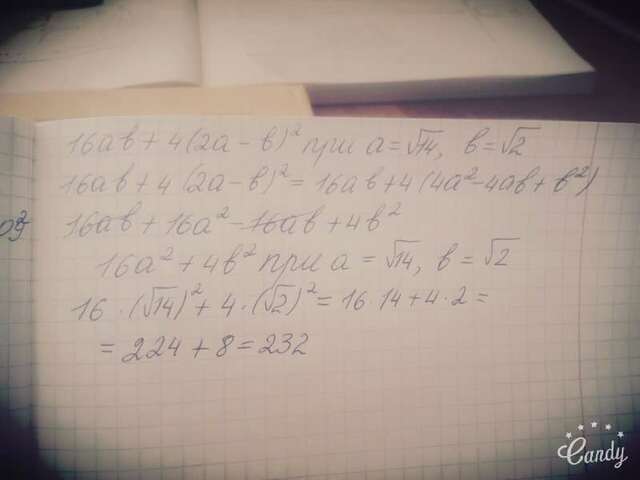 16ab + 4(2a - b)² при a = √14, b = √2
16ab + 4(2a - b)² = 16ab + 4(4a² - 4ab + b²)
16ab + 16a² - 16ab + 4b²
16a² + 4b² при a = √14, b = √2
16 · (√14)² + 4 · (√2)² = 16 · 14 + 4 · 2 =
= 224 + 8 = 232
Candy